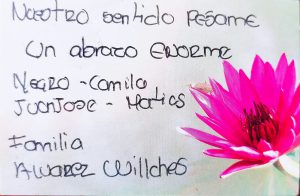 Nuestro sentido PESAME
un abrazo ENORME
Negro - Camilo
JuanJose - Matias
Familia
Alvarez Willches